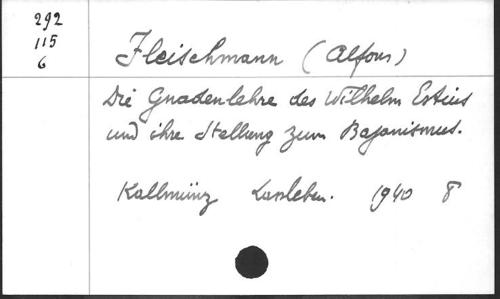 292
115
6
Fleischmann (Alfons)
Die Gnadenlehre des Wilhelm Estius
und ihre Stellung zum Bajanismus.
Kallmünz Lassleben. 1940 8